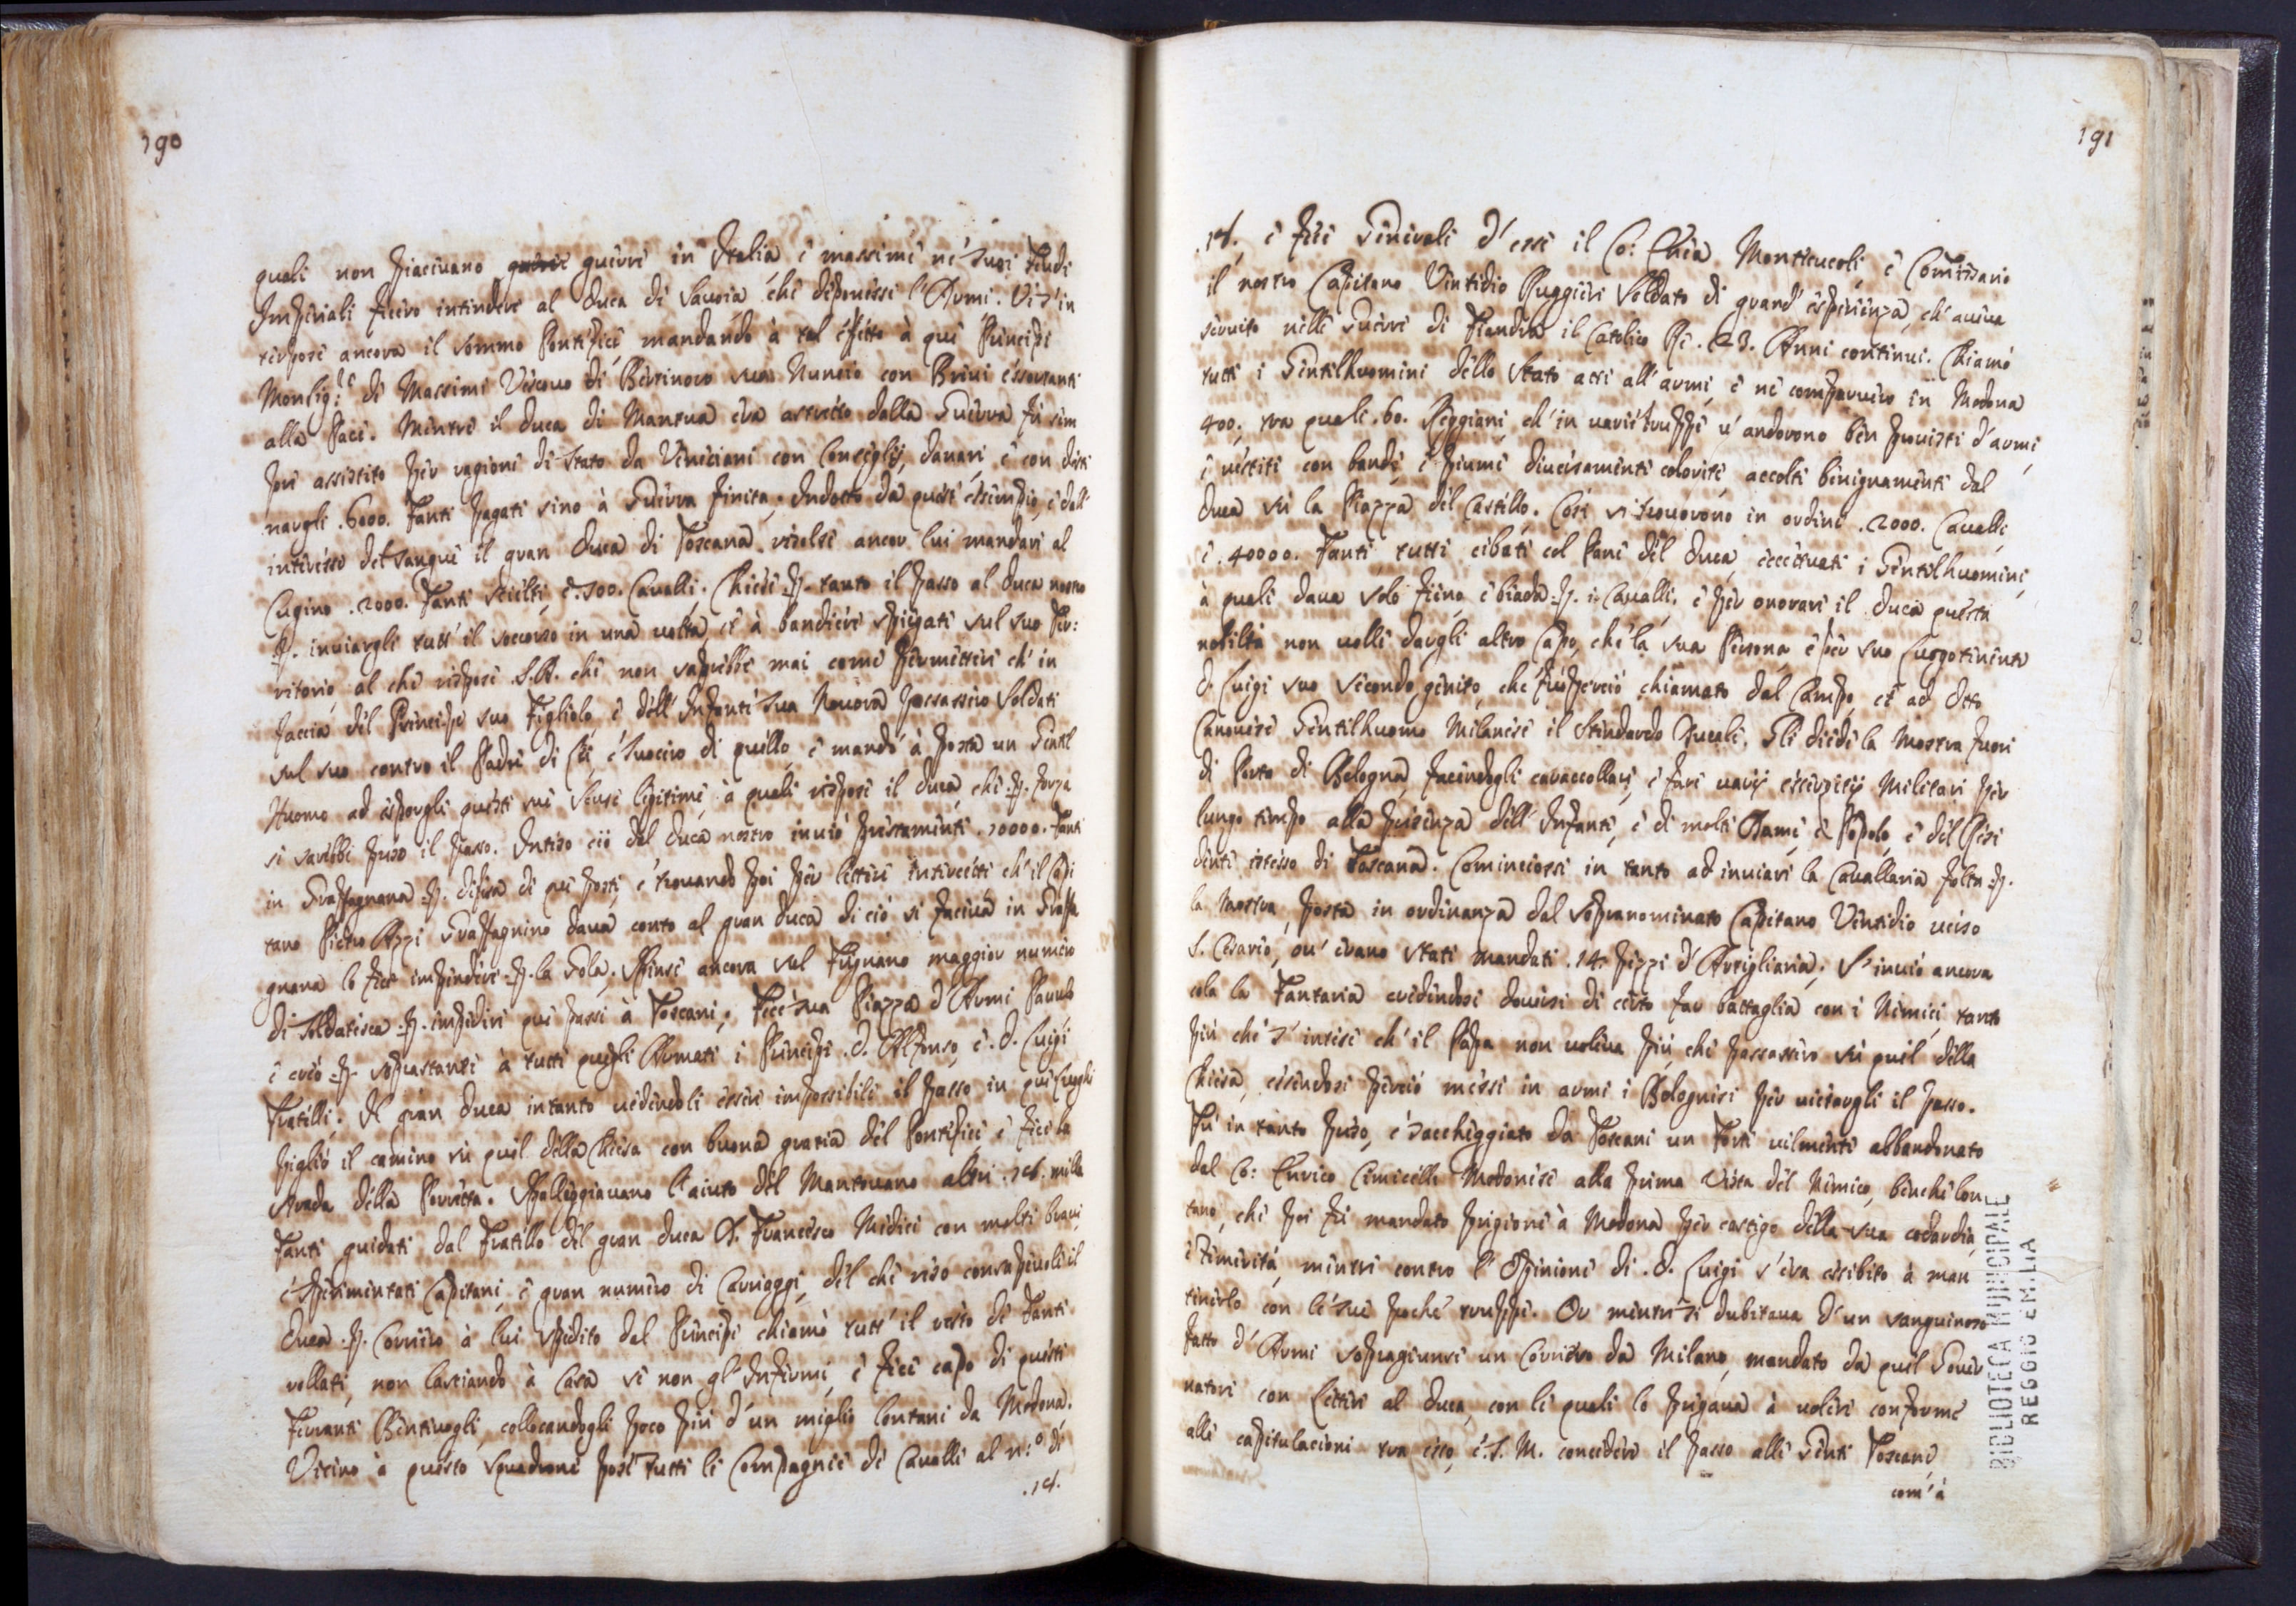 190
quali non piacivano guerre in Italia è massime nè suoi Feudi
Imperiali fecero intendere al Duca di Savoia, che diponessi l'Armi. Vi s' in
terpose ancora il sommo Pontefice mandando à tal effetto à què Principi
Monsig.re di Massimi Vescovo di Bertinoro suo Nuncio con Brevi essortanti
alla Pace. Mentre il Duca di Mantua era astretto dalla Guerra fù sem
pre assistito per ragione di Stato da Veneciani con Consiglij, danari, è con desti
nargli .6000. Fanti pagati sino à Guerra finita. Indotto da quest' essempio, è dall'
interesse del sangue il gran Duca di Toscana, risolse ancor lui mandare al
Cugino .2000. Fanti scielti, è .500. Cavalli. Chiese .p. tanto il passo al Duca nostro
.p. inviargli tutt' il soccorso in una volta, et à bandiere spiegate sul suo Ter:
ritorio, al che rispose .S.A. che non saprebbe mai come permettere ch' in
faccia del Principe suo Figliolo, è dell' Infante sua Nuora passassero Soldati
sul suo contro il Padre di Lei, è Suocero di quello, è mandò à posta un Gentil
Huomo ad esporgli queste sue scuse legitime, à quali rispose il Duca, che .p. forza
si sarebbe preso il passo. Inteso ciò dal Duca nostro inviò prestamente .10000. Fanti
in Graffagnana .p. difesa di què posti, è trovando poi per lettere intercette ch' il Capi
tano Pietro Azzi Graffagnino dava conto al gran Duca di ciò si faceva in Graffa
gnana lo fece impendere .p. la Gola. Spinse ancora sul Frignano maggior numero
di Soldatesca .p. impedire què passi à Toscani. Fece sua Piazza d'Armi Paulo
è creò .p. soprastanti à tutti quegli Armati i Principi .D. Alfonso, è .D. Luigi
Fratelli. Il gran Duca intanto vedendoli essere impossibile il passo in què Luoghi
pigliò il camino sù quel della Chiesa con buona gratia del Pontefice è fece la
strada della Porretta. Spalleggiavano l'aiuto del Mantovano altri .14. mille
Fanti guidati dal Fratello del gran Duca D. Francesco Medici con molti bravi,
è sperimentati Capitani, è gran numero di Carriaggi, del che reso consapevole il
Duca .p. Corriero à lui spedito dal Principe chiamò tutt' il resto dè Fanti
rollati, non lasciando à Casa se non gl' Infermi, è fece capo di questi
Ferrante Bentivogli, collocandogli poco più d' un miglio lontani da Modona.
Vicino à questo squadrone pose tutte le Compagnie di Cavalli al n:o di
.14.
191
.14. è fece Generale d' esse il Co: Enea Montecucoli, è Comissario
il nostro Capitano Ventidio Ruggieri Soldato di grand' esperienza, ch' aveva
servito nelle Guerre di Fiandra il Catolico Rè .23. Anni continui. Chiamò
tutti i Gentilhuomini dello Stato atti all' armi, è ne comparvero in Modona
400. tra quali .60. Reggiani, ch' in varie truppe v' andorono ben provisti d' armi,
è vestiti con bande, è piume diversamente colorite accolti benignamente dal
Duca sù la Piazza del Castello. Così si trovorono in ordine .2000. Cavalli,
è .40000. Fanti, tutti cibati col Pane del Duca, eccettuati i Gentilhuomini,
à quali dava solo fieno, è biada .p. i Cavalli, è per onorare il Duca questa
nobiltà non volle dargli altro Capo, che la sua Persona è per suo Luogotenente
D. Luigi suo secondo genito, che fù perciò chiamato dal Campo, et ad Otto
Canovese Gentilhuomo Milanese il Stendardo Ducale. Gli diede la Mostra fuori
di Porta di Bologna, facendogli caraccollare, è fare varij essercitij Militari per
lungo tempo alla presenza dell' Infante, è di molte Dame, è Popolo, è del Resi
dente istesso di Toscana. Cominciossi in tanto ad inviare la Cavallaria fatta .p.
la Mostra, posta in ordinanza dal sopranominato Capitano Ventidio verso
S. Cesario, ov' erano stati mandati .14. pezzi d' Artigliaria. S' inviò ancora
colà la Fantaria credendosi doversi di certo far battaglia con i Nemici, tanto
più che s' intese ch' il Papa non voleva più che passassero sù quel della
Chiesa, essendosi perciò messi in armi i Bolognesi per vietargli il passo.
Fù in tanto preso, è saccheggiato da Toscani un Forte vilmente abbandonato
dal Co: Enrico Cimicelli Modonese alla prima Vista del Nemico, benche lon
tano, che poi fù mandato prigione à Modona per castigo della sua codardia,
è temerità, mentre contro l' Opinione di .D. Luigi s' era essibito à man
tenerlo con le sue poche truppe. Or mentre si dubitava d' un sanguinoso
fatto d' Armi sopragiunse un Corriero da Milano, mandato da quel Gover
natore con Lettere al Duca, con le quali lo pregava à volere conforme
alle capitulacioni tra esso, è .S. M. concedere il passo alle Genti Toscane,
com' à
BIBLIOTECA MUNICIPALE
REGGIO EMILIA